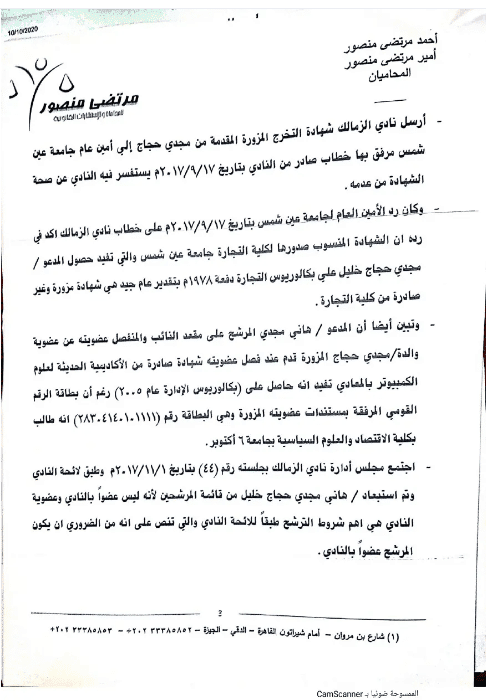 10/10/2020
أحمد مرتضى منصور
أمير مرتضى منصور
المحاميان
مرتضى منصور
للمحاماه والإستشارات القانونية
- أرسل نادي الزمالك شهادة التخرج المزورة المقدمة من مجدي حجاج إلي أمين عام جامعة عين
شمس مرفق بها خطاب صادر من النادي بتاريخ ٢٠١٧/٩/١٧م يستفسر فيه النادي عن صحة
الشهادة من عدمه .
- وكان رد الأمين العام لجامعة عين شمس بتاريخ ٢٠١٧/٩/١٧م على خطاب نادي الزمالك اكد في
رده ان الشهادة المنسوب صدورها لكلية التجارة جامعة عين شمس والتي تفيد حصول المدعو /
مجدي حجاج خليل علي بكالوريوس التجارة دفعة ١٩٧٨م بتقدير عام جيد هي شهادة مزورة وغير
صادرة من كلية التجارة .
- وتبين أيضا أن المدعو / هاني مجدي المرشح على مقعد النائب والمنفصل عضويته عن عضوية
والدة/مجدي حجاج المزورة قدم عند فصل عضويته شهادة صادرة من الأكاديمية الحديثة لعلوم
الكمبيوتر بالمعادي تفيد انه حاصل على (بكالوريوس الإدارة عام ٢٠٠٥) رغم أن بطاقة الرقم
القومي المرفقة بمستندات عضويته المزورة وهي البطاقة رقم (٢٨٣٠٤١٤٠١٠١١١١) انه طالب
بكلية الاقتصاد والعلوم السياسية بجامعة ٦ أكتوبر .
- اجتمع مجلس أدارة نادي الزمالك بجلسته رقم (٤٤) بتاريخ ٢٠١٧/١١/١م وطبق لائحة النادي
وتم استبعاد / هاني مجدي حجاج خليل من قائمة المرشحين لأنه ليس عضواً بالنادي وعضوية
النادي هي اهم شروط الترشح طبقاً للائحة النادي والتي تنص على انه من الضروري ان يكون
المرشح عضواً بالنادي .
(١) شارع بن مروان - أمام شيراتون القاهرة - الدقي - الجيزة - ٣٣٣٨٥٨٥٢ ٢٠٢+ - ٣٣٣٨٥٨٥٣ ٢٠٢+
الممسوحة ضوئيا بـ CamScanner